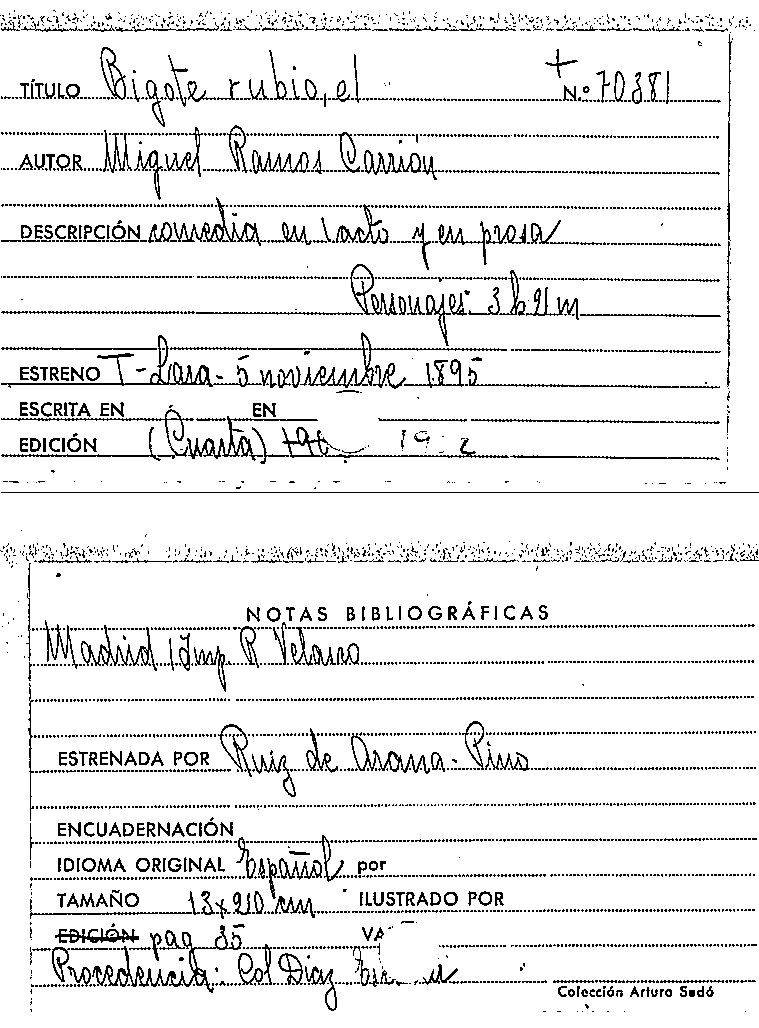 TÍTULO Bigote rubio, el + N.º 70381
AUTOR Miguel Ramos Carrión
DESCRIPCIÓN comedia en 1 acto y en prosa
Personajes: 3 h 2 m
ESTRENO T-Lara- 5 noviembre 1895
ESCRITA EN EN
EDICIÓN (Cuarta)
NOTAS BIBLIOGRÁFICAS
Madrid / Imp. R Velasco
ESTRENADA POR Ruiz de Arana - Pino
ENCUADERNACIÓN
IDIOMA ORIGINAL Español por
TAMAÑO 13x20 cm ILUSTRADO POR
EDICIÓN pag 35
Procedencia: Col Diaz
Colección Arturo Sedó